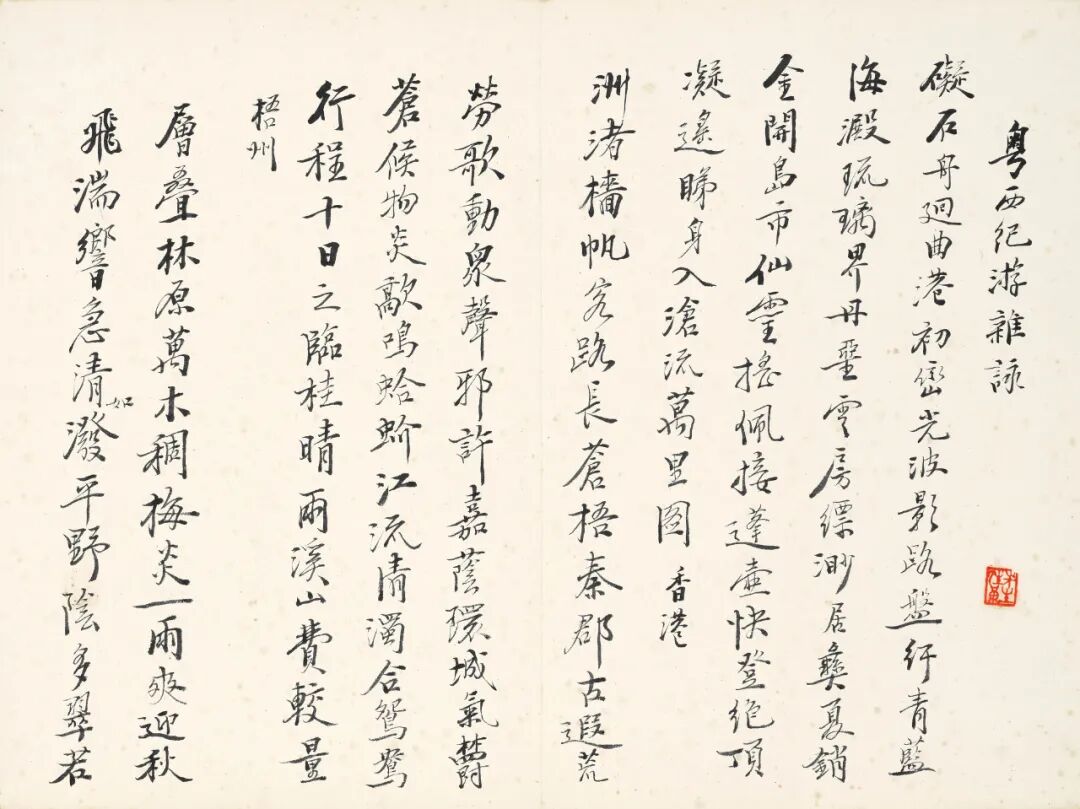 粵西紀游雜詠
礙石舟迴曲港初巒光波影路盤紆青藍
海澱琉璃界丹堊雲房縹渺居彝夏銷
金開島市仙靈搖佩接蓬壺快登絕頂
凝遙睇身入滄流萬里圖 香港
洲渚檣帆客路長蒼梧秦郡古遐荒
勞歌動眾聲邪許嘉蔭環城氣鬱
蒼候物炎歊鳴蛤蚧江流清濁合鴛鴦
行程十日之臨桂晴雨溪山費較量
梧州
層疊林原萬木稠梅炎一雨爽迎秋
飛湍響急清如潑平野陰多翠若